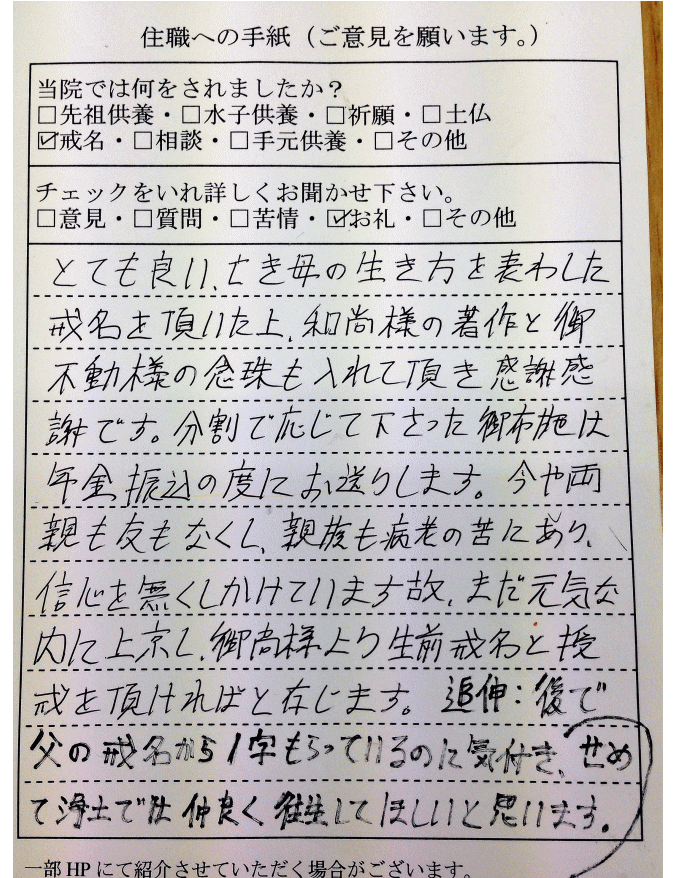 住職への手紙（ご意見を願います。）
当院では何をされましたか？
□先祖供養・□水子供養・□祈願・□土仏
☑戒名・□相談・□手元供養・□その他
チェックをいれ詳しくお聞かせ下さい。
□意見・□質問・□苦情・☑お礼・□その他
とても良い、亡き母の生き方を表わした
戒名を頂いた上、和尚様の著作と御
不動様の念珠も入れて頂き感謝感
謝です。分割で応じて下さった御布施は
年金振込の度にお送りします。今や両
親も友もなくし、親族も病老の苦にあり、
信心を無くしかけています故、まだ元気な
内に上京し、御尚様より生前戒名と授
戒を頂ければと存じます。追伸：後で
父の戒名から1字もらっているのに気付き、せめ
て浄土では仲良く往生してほしいと思います。
一部HPにて紹介させていただく場合がございます。